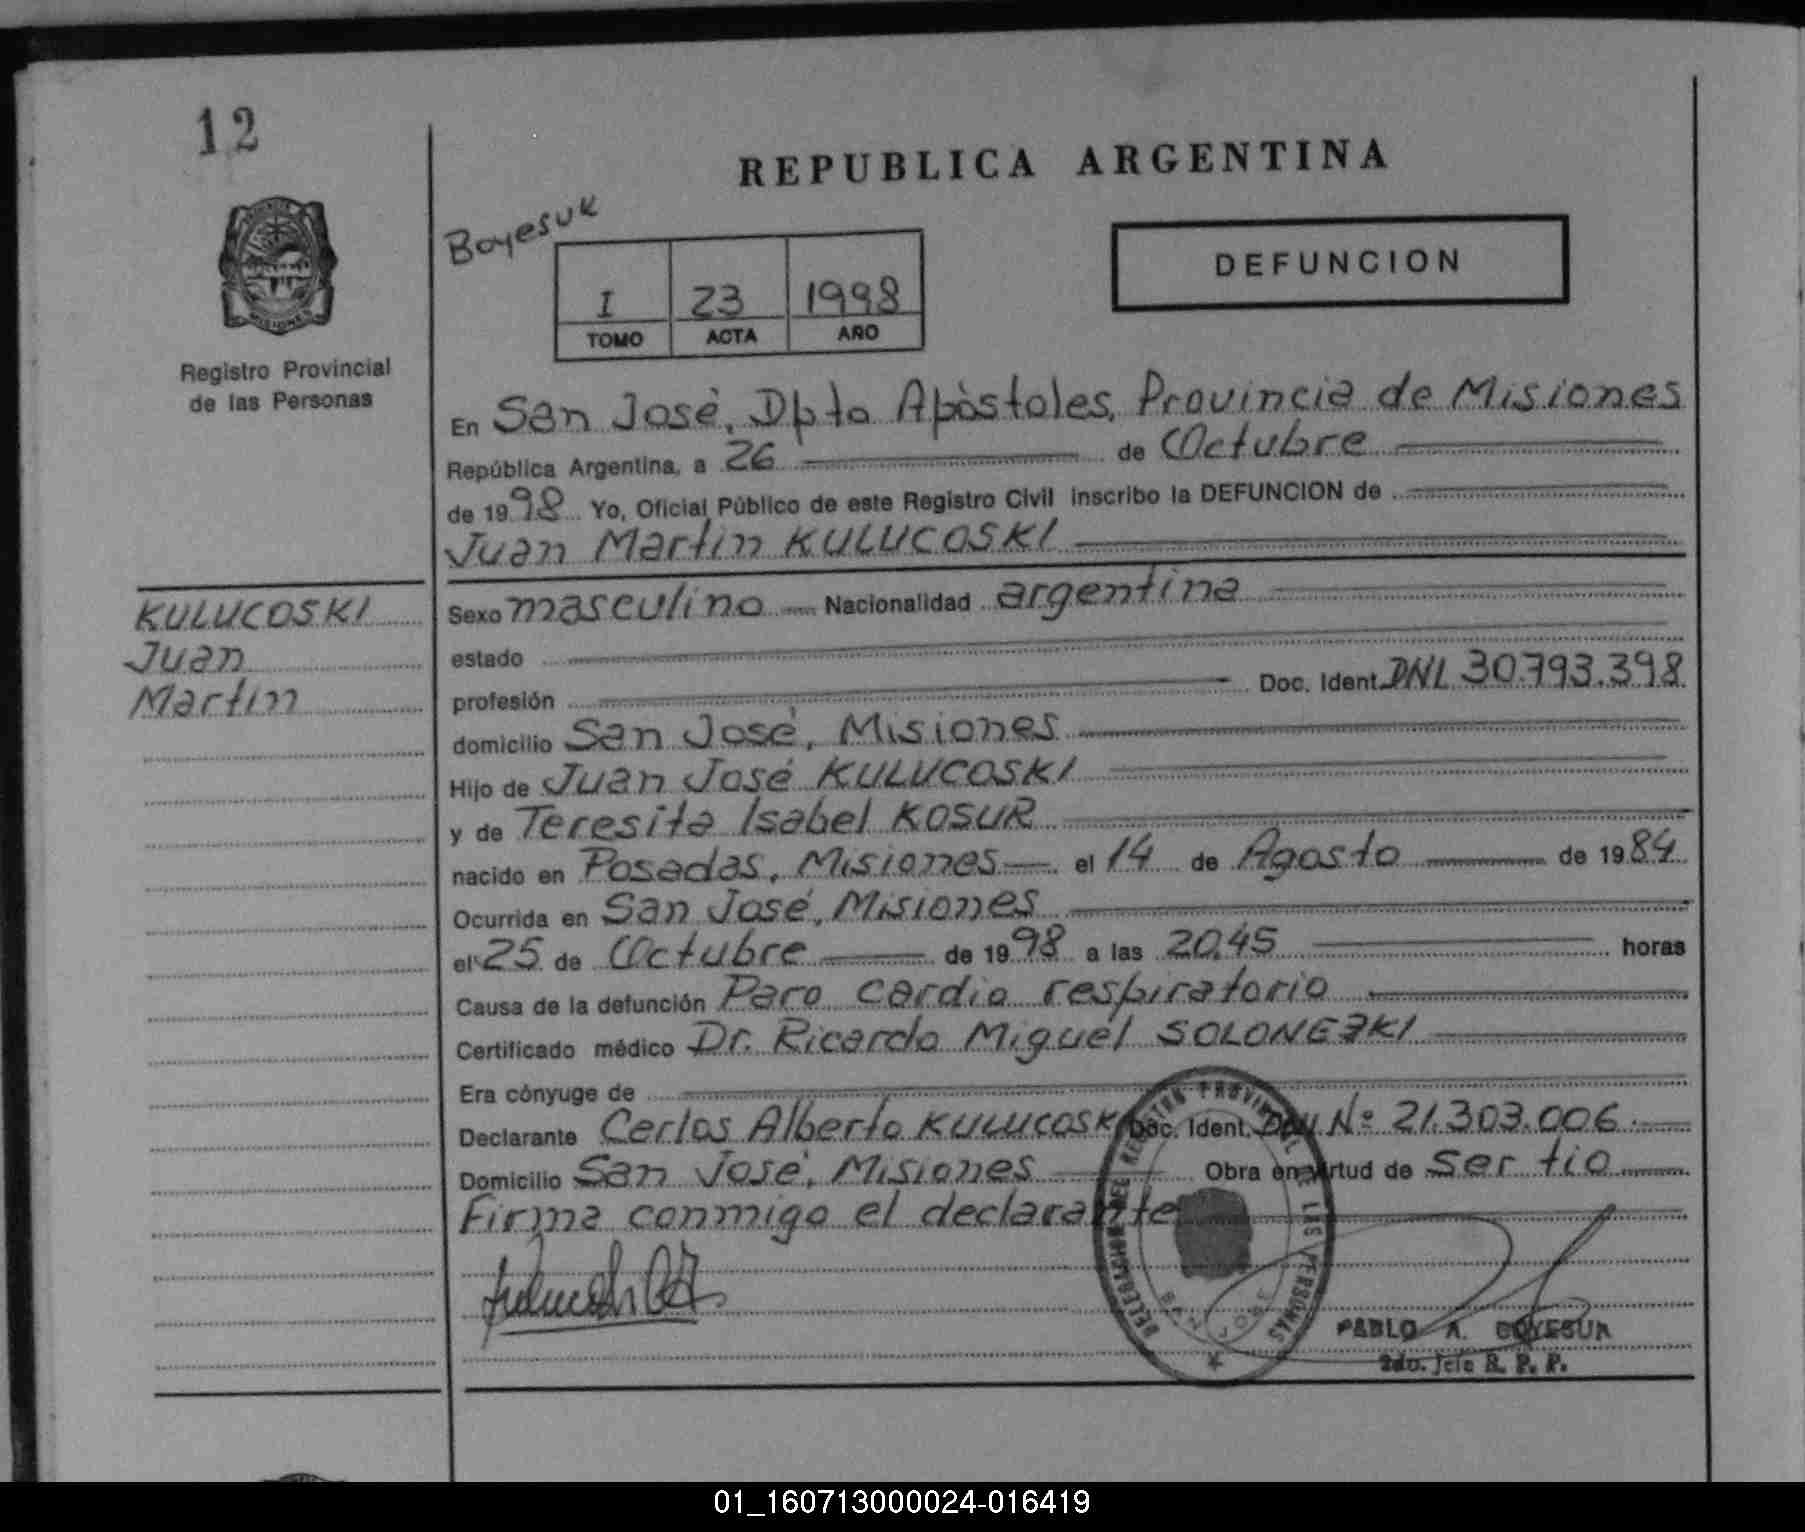 12
REPUBLICA ARGENTINA
Boyesuk
DEFUNCION
I 23 1998
TOMO ACTA AÑO
Registro Provincial
de las Personas
En San José, Dpto Apóstoles, Provincia de Misiones
República Argentina, a 26 de Octubre
de 1998 Yo, Oficial Público de este Registro Civil inscribo la DEFUNCION de
Juan Martin KULUCOSKI
KULUCOSKI
Juan
Martin
Sexo masculino Nacionalidad argentina
estado
profesión Doc. Ident. DNI. 30.793.398
domicilio San José, Misiones
Hijo de Juan José KULUCOSKI
y de Teresita Isabel KOSUR
nacido en Posadas, Misiones el 14 de Agosto de 1984
Ocurrida en San José, Misiones
el 25 de Octubre de 1998 a las 20.45 horas
Causa de la defunción Paro cardio respiratorio
Certificado médico Dr. Ricardo Miguel SOLONEZKI
Era cónyuge de
Declarante Carlos Alberto KULUCOSKI Doc. Ident. DNI Nº 21.303.006
Domicilio San José, Misiones Obra en virtud de ser tio
Firma conmigo el declarante
DELEGACION DEL REGISTRO PROVINCIAL DE LAS PERSONAS
SAN JOSE
PABLO A. BOYESUK
2do. Jefe R. P. P.
01_160713000024-016419